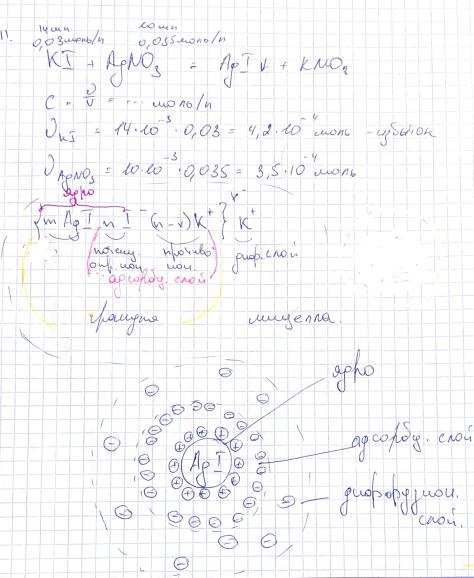 11.
14 мл 10 мл
0,03 моль/л 0,035 моль/л
KI + AgNO₃ = AgI ↓ + KNO₃
C = ν/V = ... моль/л
ν KI = 14·10⁻³ · 0,03 = 4,2·10⁻⁴ моль - избыток
ν AgNO₃ = 10·10⁻³ · 0,035 = 3,5·10⁻⁴ моль
ядро
{ m AgI n I⁻ (n-x) K⁺ }ˣ⁻ x K⁺
противо диф. слой
опр. ион ион.
адсорбц. слой
гранула мицелла.
ядро
AgI
адсорбц. слой
диффузион.
слой.